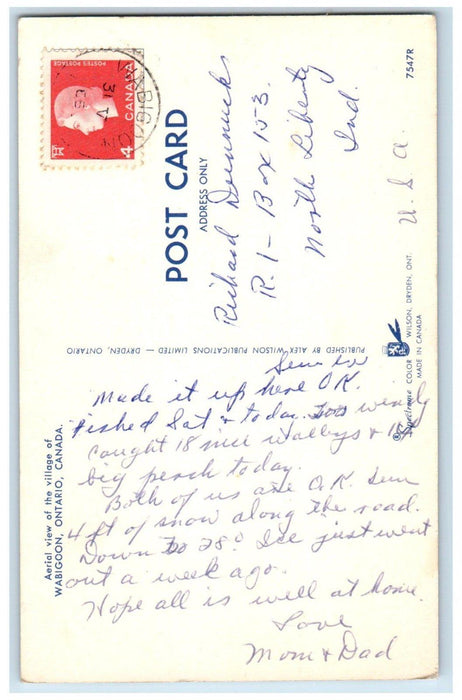 7547R
POSTES POSTAGE
CANADA
4
31 V
POST CARD
ADDRESS ONLY
Richard
R. 1 - Box 153
North Liberty
Ind.
U.S.A.
PUBLISHED BY ALEX WILSON PUBLICATIONS LIMITED — DRYDEN, ONTARIO
COLOR
WILSON, DRYDEN, ONT.
MADE IN CANADA
Aerial view of the village of
WABIGOON, ONTARIO, CANADA.
Made it up here OK.
Fished Sat & today. Too windy
Caught 18 nice walleys &
big perch today.
Both of us are O.K.
4 ft of snow along the road.
Down to 28° Ice just went
out a week ago.
Hope all is well at home.
Love
Mom & Dad